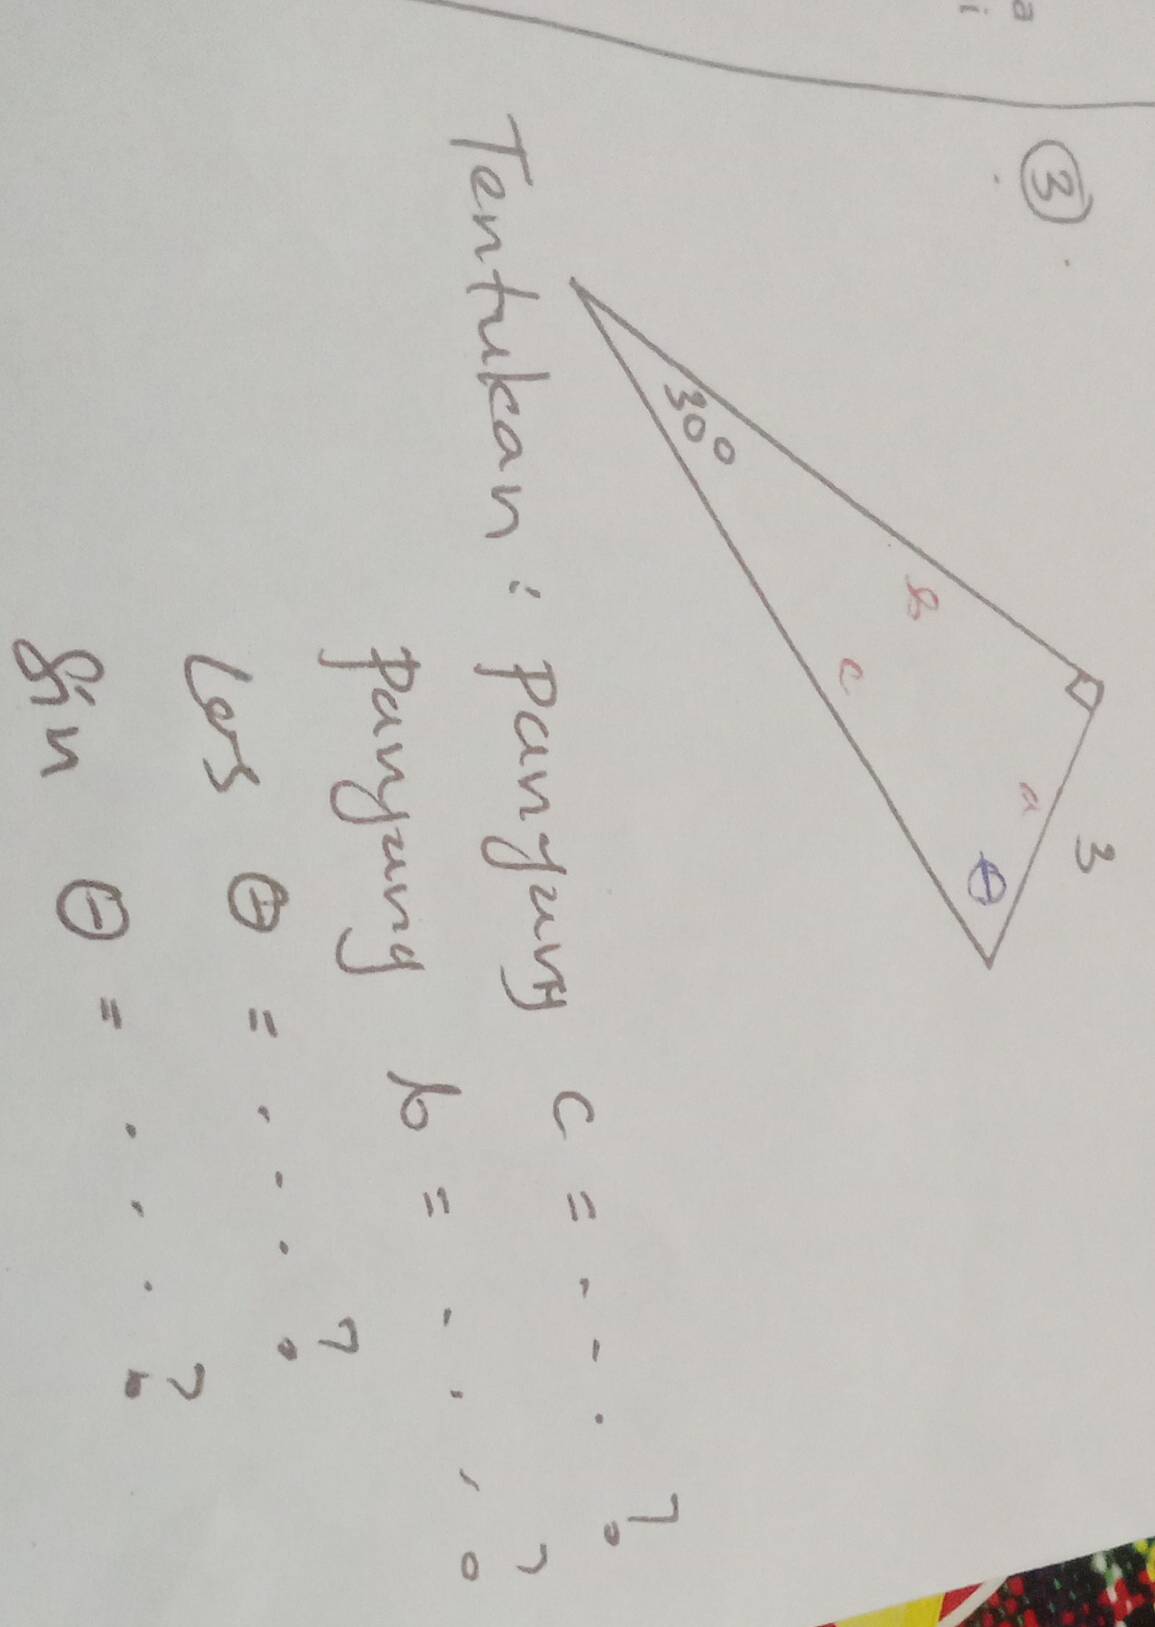 a
i
3
30°
b
c
a
3
θ
Tentukan : panjang c = . . . ?
panjang b = . . . ?
Cos θ = . . . ?
Sin θ = . . . ?